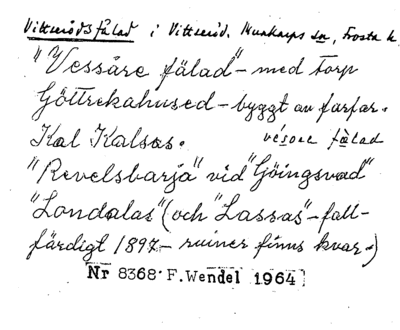 Vittseröds fälad i Vittseröd. Munkarps sn, Frosta h.
"Vessåre fälad" - med torp
Göttrekahused - byggt av farfar.
Kal Kalsas. vésore fàlad
"Revelsbarja" vid "Göingsvad"
"Londalas" (och "Lassas" - fall-
färdigt 1897 - ruiner finns kvar.)
Nr 8368. F. Wendel 1964